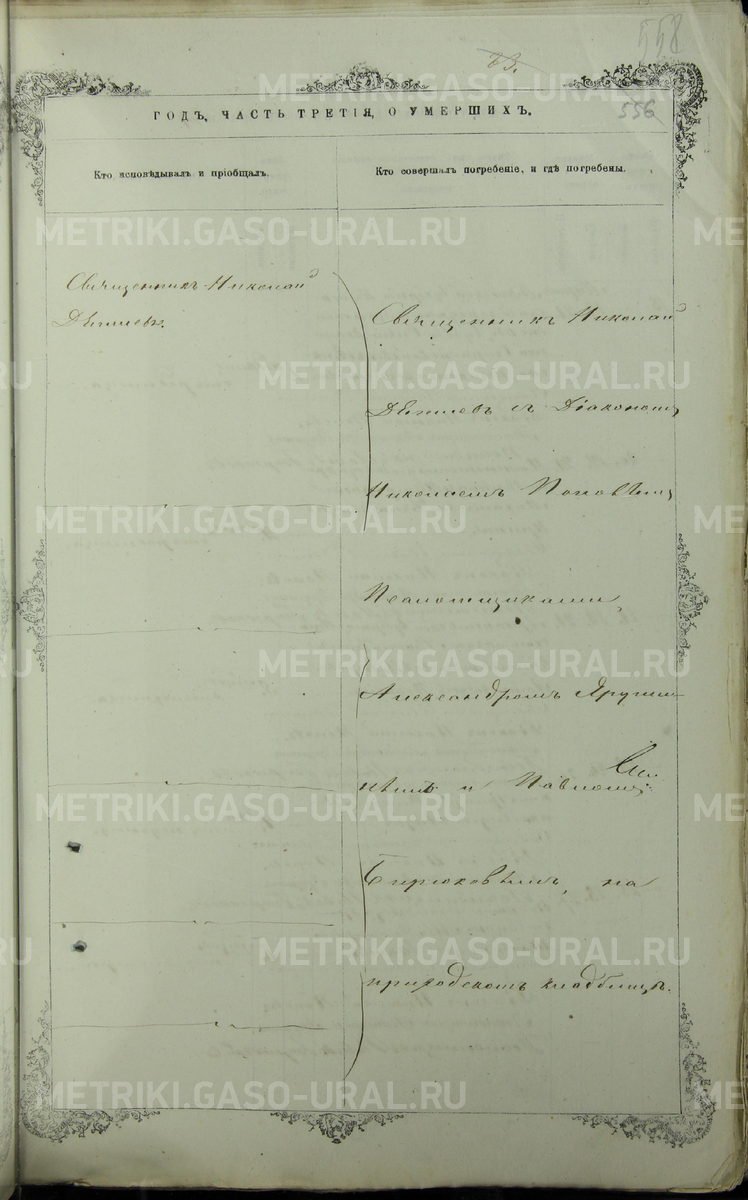 558
83.
ГОДЪ, ЧАСТЬ ТРЕТІЯ, О УМЕРШИХЪ.
556
Кто исповѣдывалъ и пріобщалъ.
Кто совершалъ погребеніе, и гдѣ погребены.
Священникъ Николай
Священникъ Николай
съ Діакономъ
Николаемъ Поповымъ,
Псаломщиками,
Александромъ
и Павломъ
Бирюковымъ, на
приходскомъ кладбищѣ.
METRIKI.GASO-URAL.RU